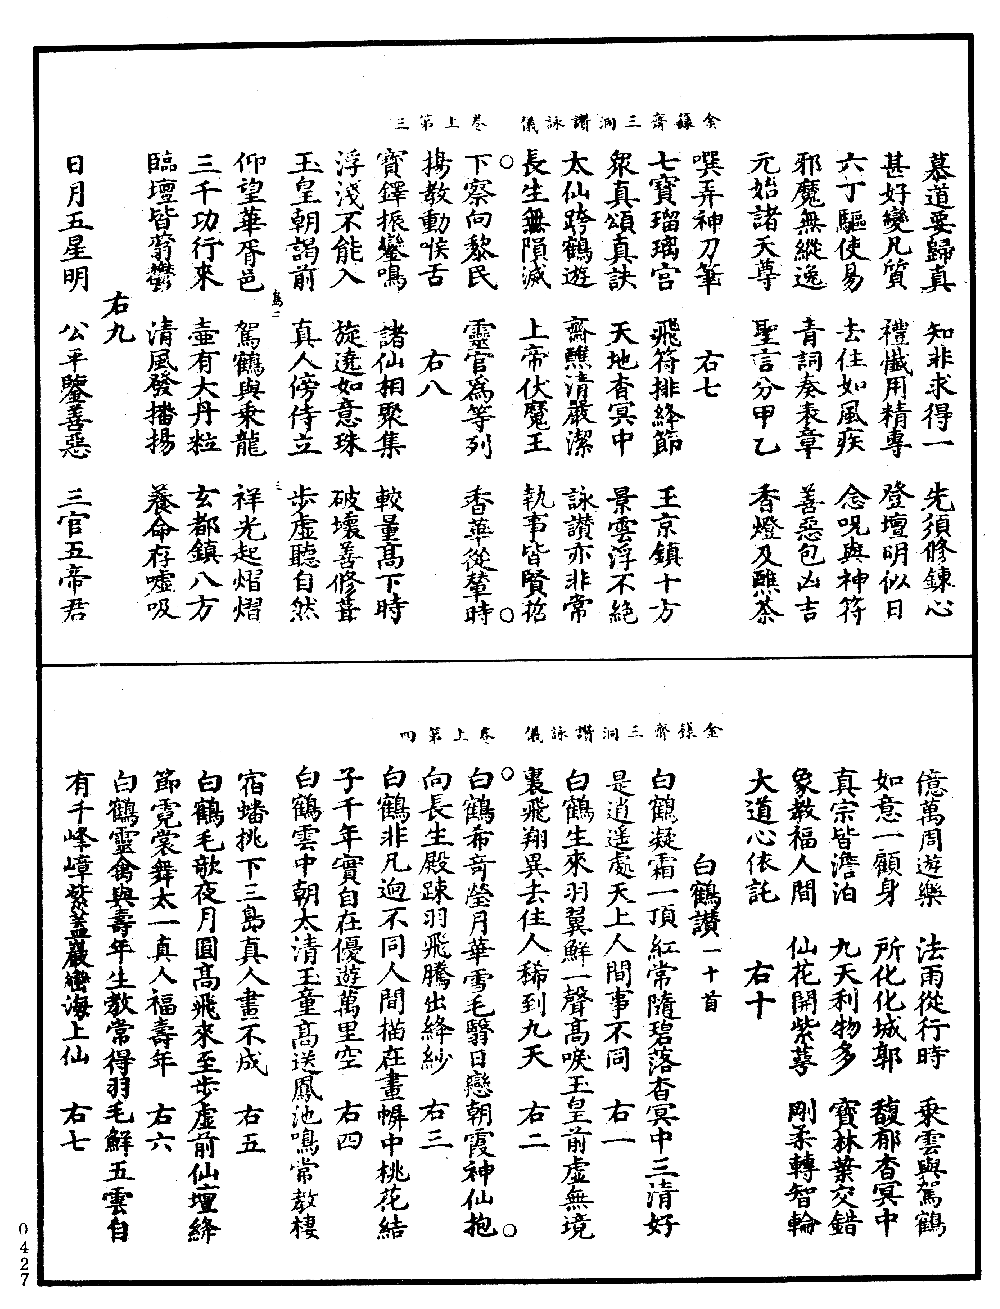 金籙齋三洞讚詠儀　卷上第三
慕道要歸真　知非求得一　先須修鍊心
甚好變凡質　禮懺用精專　登壇明似日
六丁驅使易　去住如風疾　念呪與神符
邪魔無縱逸　青詞奏表章　善惡包凶吉
元始諸天尊　聖言分甲乙　香燈及醮茶
噀弄神刀筆　右七
七寶瑠璃宮　飛符排絳節　王京鎮十方
衆真頌真訣　天地杳冥中　景雲浮不絕
太仙跨鶴遊　齋醮清嚴潔　詠讚亦非常
長生無隕滅　上帝伏魔王　執事皆賢哲
下察向黎民　靈官為等列　香華從輦時
搗教動喉舌　右八
寶鐸振鑾鳴　諸仙相聚集　較量高下時
浮淺不能入　旋遶如意珠　破壞善修葺
玉皇朝謁前　真人傍侍立　步虛聽自然
仰望華胥邑　駕鶴與乘龍　祥光起熠熠
三千功行來　壷有大丹粒　玄都鎮八方
臨壇皆蓊鬱　清風發播揚　養命存噓吸
右九
日月五星明　公平鑒善惡　三官五帝君
金籙齋三洞讚詠儀　卷上第四
億萬周遊樂　法雨從行時　乘雲與駕鶴
如意一顧身　所化化城郭　馥郁杳冥中
真宗皆澹泊　九天利物多　寶林葉交錯
象教福人間　仙花開紫萼　剛柔轉智輪
大道心依託　右十
白鶴讚一十首
白鶴凝霜一頂紅常隨碧落杳冥中三清好
是逍遥處天上人間事不同　右一
白鶴生來羽翼鮮一聲高唳玉皇前虛無境
裏飛翔異去住人稀到九天　右二
白鶴希奇瑩月華雪毛翳日戀朝霞神仙抱
向長生殿踈羽飛騰出絳紗　右三
白鶴非凡逈不同人間描在畫幈中桃花結
子千年實自在優遊萬里空　右四
白鶴雲中朝太清玉童高送鳳池鳴常教棲
宿蟠桃下三島真人畫不成　右五
白鶴毛歆夜月圓高飛來至步虛前仙壇絳
節霓裳舞太一真人福壽年　右六
白鶴靈禽與壽年生教常得羽毛鮮五雲自
有千峰嶂紫蓋巖巒海上仙　右七
0427